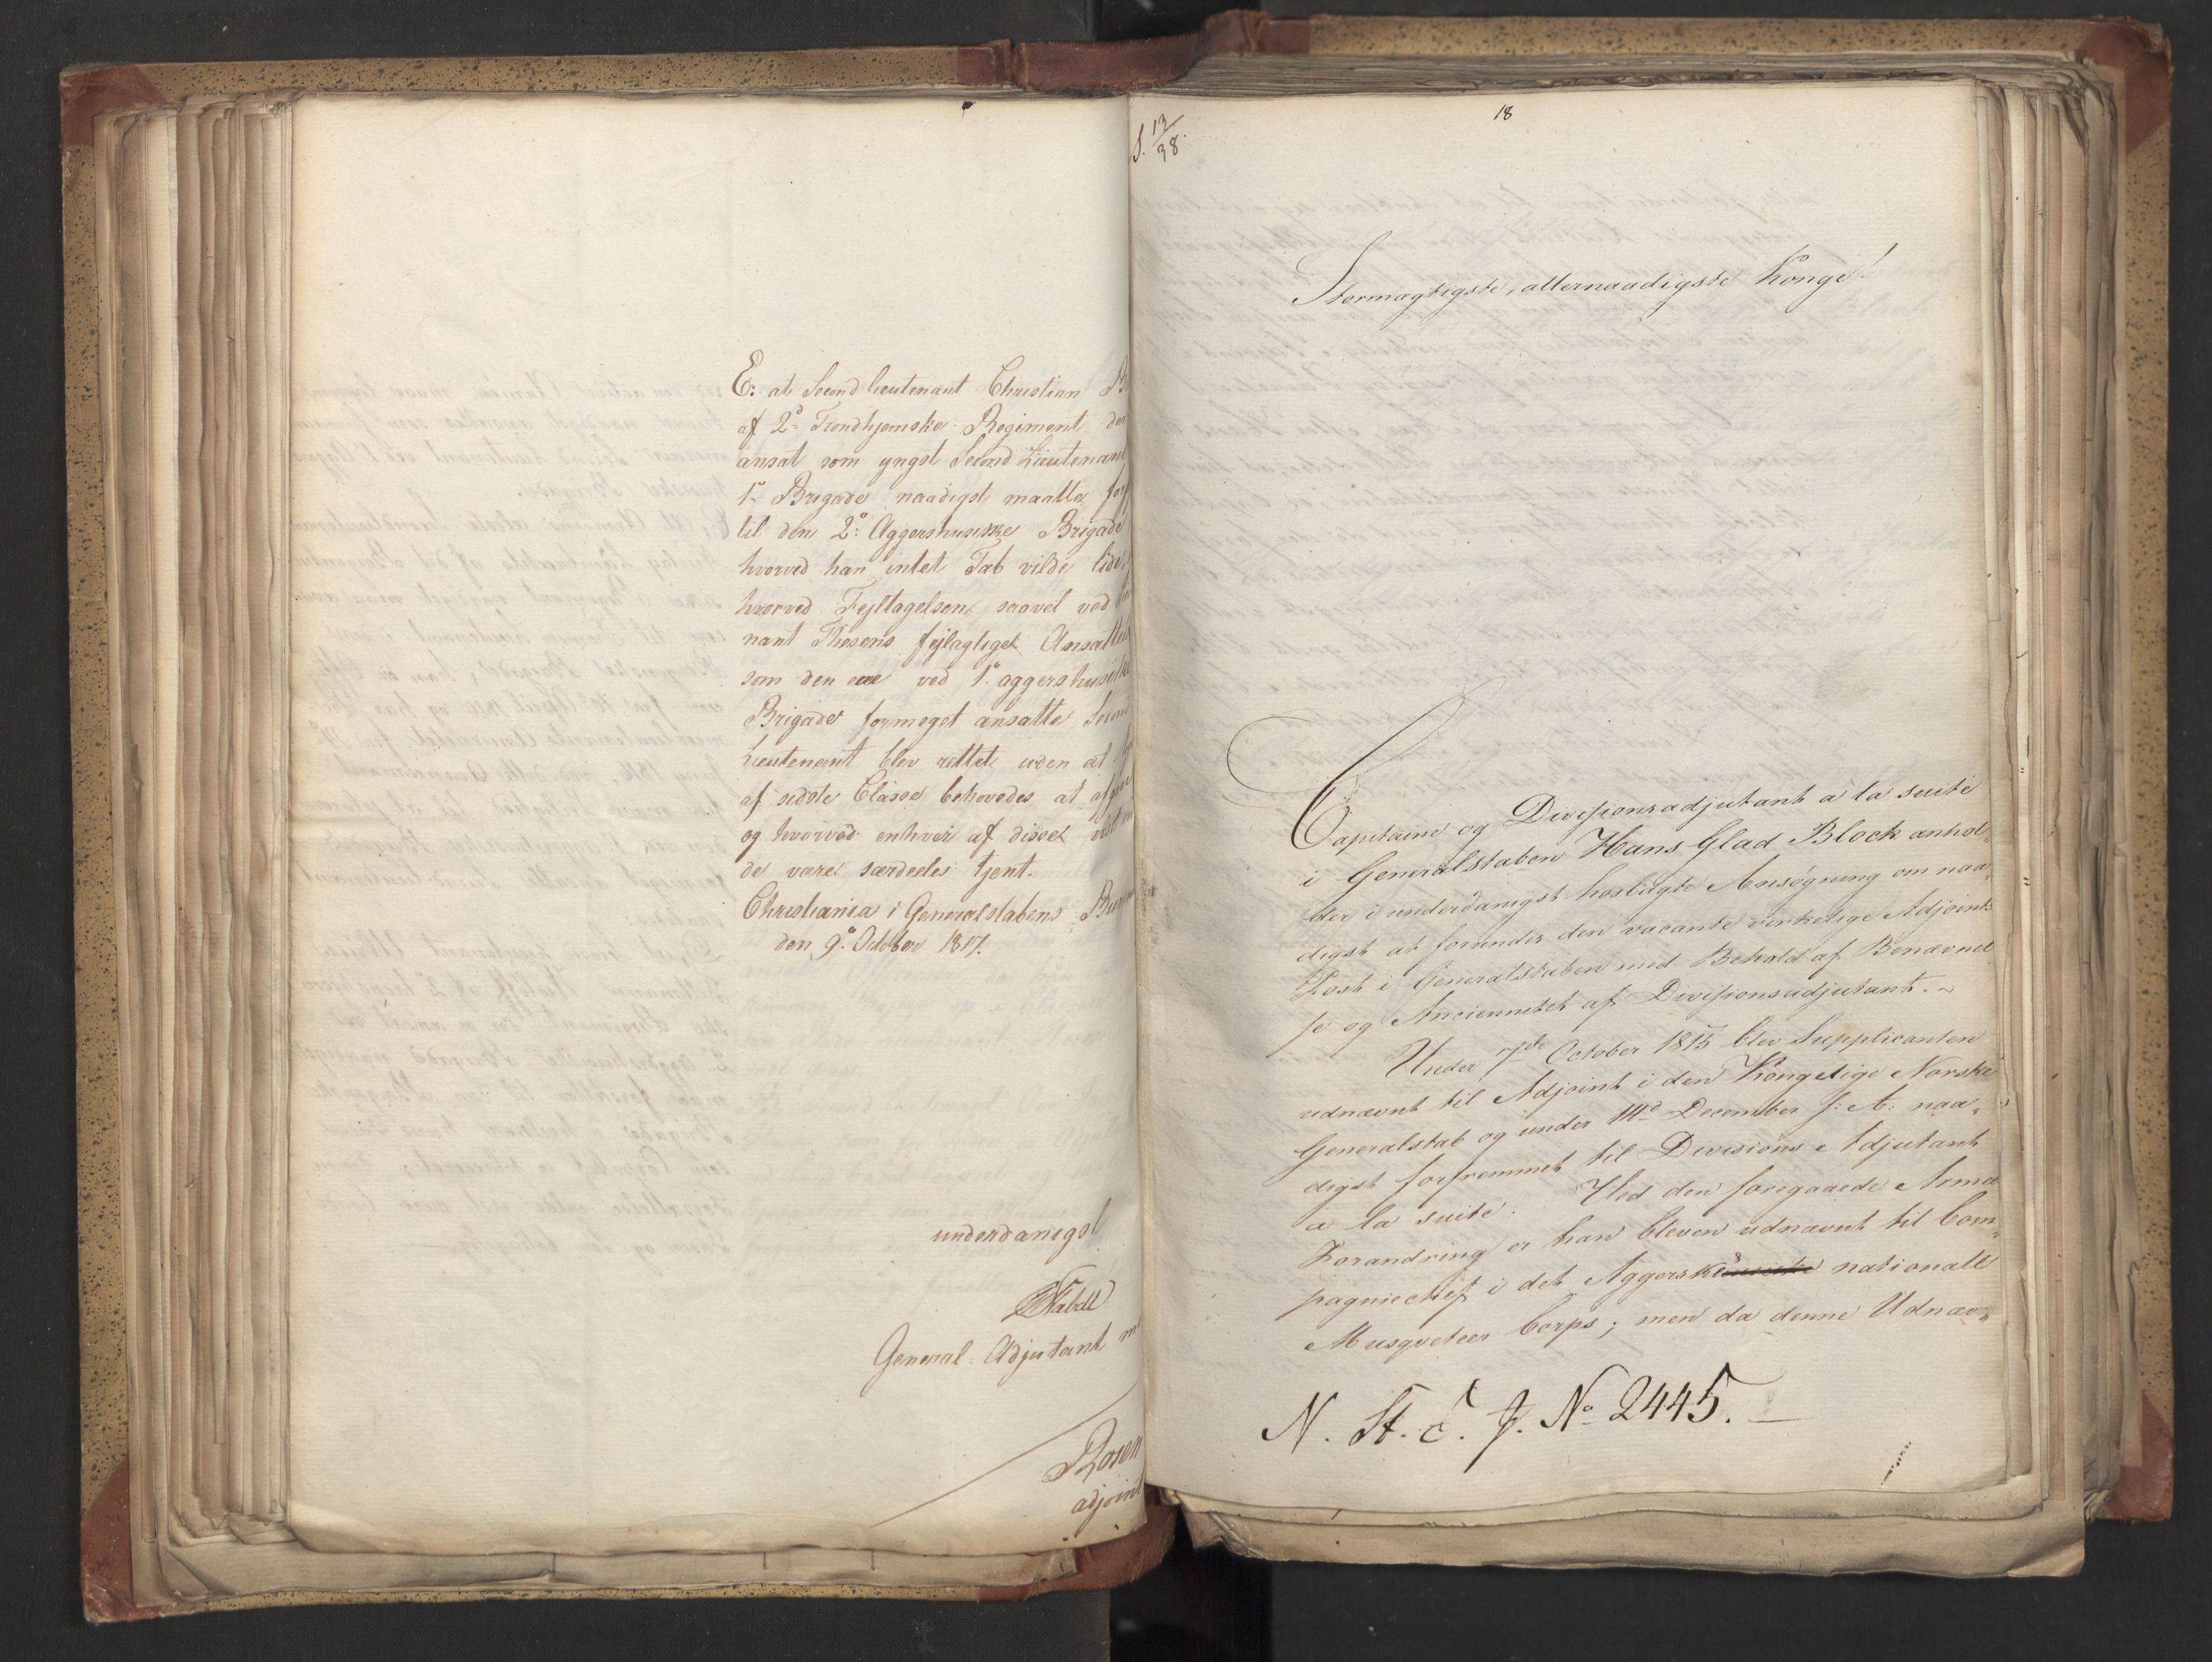 E: at Second lieutenant Christian B
af 2d Trondhjemske Regiment den
ansat som yngst Second Lieutenant
1e Brigade naadigst maatte for
til den 2d Aggershusiske Brigade
hvorved han intet Tab vilde lide,
hvorved Fejltagelsen saavel ved
nant Thesens fejlagtiget Ansætt
som den ene ved 1e aggershusiske
Brigade formeget ansatte Second
Lieutenant blev rettet uden at
af sidste Classe behovedes at afgaae
og hvorved enhver af disse vist
de være særdeeles tjent.
Christiania i Generalstabens Bureau
den 9d October 1817.
underdanigst
General Adjutant
Rosen
adjoint
S. 13/38.
18
Stormægtigste, allernaadigste Konge!
Capitaine og Divisionsadjutant a la suite
i Generalstaben Hans Glad Block anhol„
der i underdanigst hoslagte Ansøgning om naa„
digst at forundes den vacante virkelige Adjoints
Post i Generalstaben med Behold af Benævnel
se og Anciennitet af Divisionsadjutant. ~
Under 7de October 1815 blev Supplicanten
udnævnt til Adjoint i den Kongelige Norske
Generalstab og under 14d December s: A: naa„
digst forfremmet til Divisions Adjutant
a la suite. Ved den foregaaede Armee
Forandring er han bleven udnævnt til Com„
pagniechef i det Aggerske nationale
Musqveteer Corps; men da denne Udnæv„
N. St. C. J. No 2445.